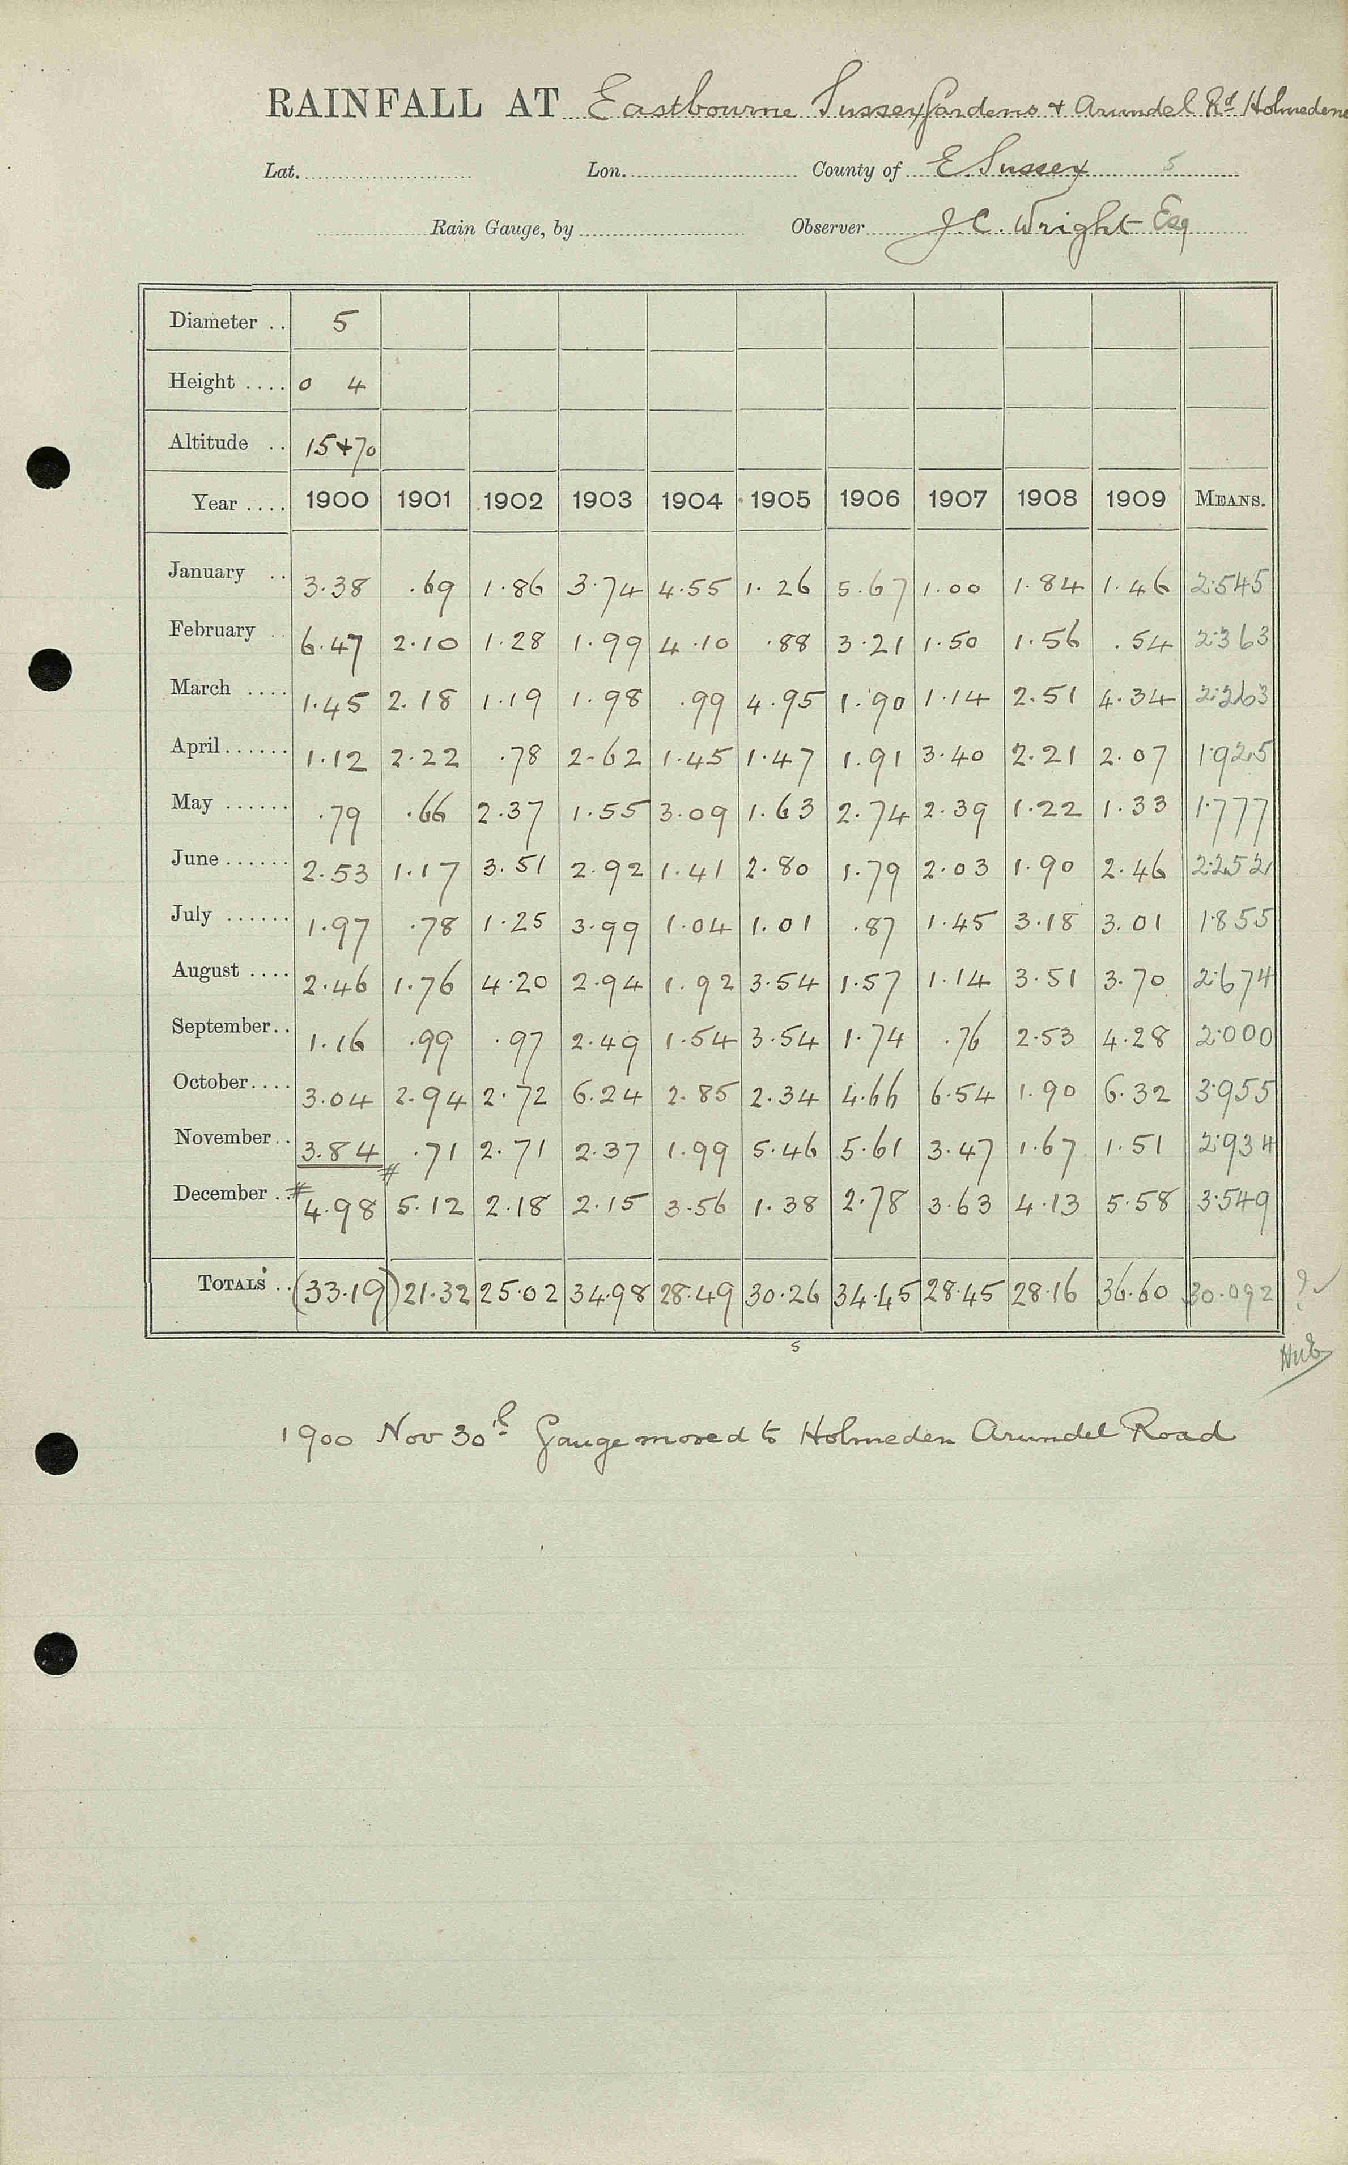 RAINFALL AT Eastbourne Sussex Gardens & Arundel Rd Holmedene
Lat. Lon. County of E Sussex 5
Rain Gauge, by Observer J.C. Wright Esq
Diameter .. 5
Height .... 0 4
Altitude .. 15 & 70
Year .... 1900 1901 1902 1903 1904 1905 1906 1907 1908 1909 MEANS.
January .. 3.38 .69 1.86 3.74 4.55 1.26 5.67 1.00 1.84 1.46 2.545
February .. 6.47 2.10 1.28 1.99 4.10 .88 3.21 1.50 1.56 .54 2.363
March .... 1.45 2.18 1.19 1.98 .99 4.95 1.90 1.14 2.51 4.34 2.263
April...... 1.12 2.22 .78 2.62 1.45 1.47 1.91 3.40 2.21 2.07 1.925
May ...... .79 .66 2.37 1.55 3.09 1.63 2.74 2.39 1.22 1.33 1.777
June...... 2.53 1.17 3.51 2.92 1.41 2.80 1.79 2.03 1.90 2.46 2.252
July ...... 1.97 .78 1.25 3.99 1.04 1.01 .87 1.45 3.18 3.01 1.855
August .... 2.46 1.76 4.20 2.94 1.92 3.54 1.57 1.14 3.51 3.70 2.674
September.. 1.16 .99 .97 2.49 1.54 3.54 1.74 .76 2.53 4.28 2.000
October.... 3.04 2.94 2.72 6.24 2.85 2.34 4.66 6.54 1.90 6.32 3.955
November.. 3.84 .71 2.71 2.37 1.99 5.46 5.61 3.47 1.67 1.51 2.934
December .. # 4.98 # 5.12 2.18 2.15 3.56 1.38 2.78 3.63 4.13 5.58 3.549
TOTALS .. (33.19) 21.32 25.02 34.98 28.49 30.26 34.45 28.45 28.16 36.60 30.092 ? ✓
5
1900 Nov 30th Gauge moved to Holmeden Arundel Road